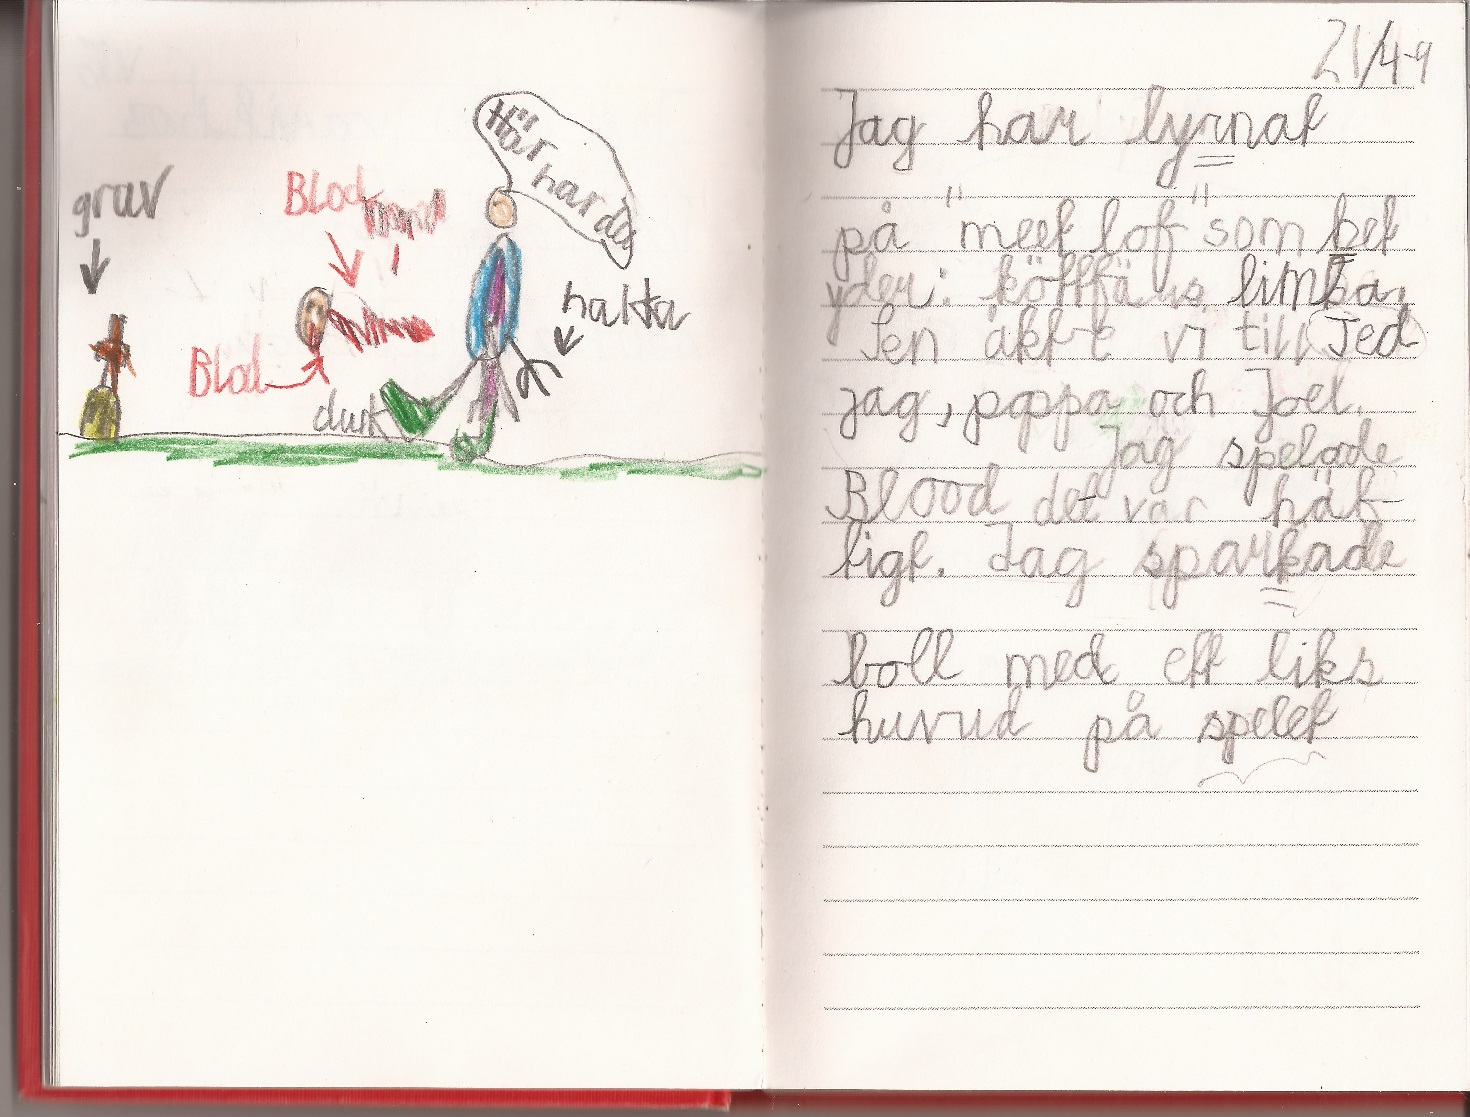 grav
Blod
Här
har
Blod
dunk
21/4-9
Jag har
på "meet lof" som bet
yder: köttfärs limpa.
Sen åkte vi till Ted
jag, pappa och Joel.
Jag spelade
Blood det var häf-
tigt. Jag sparkade
boll med ett liks
huvud på spelet